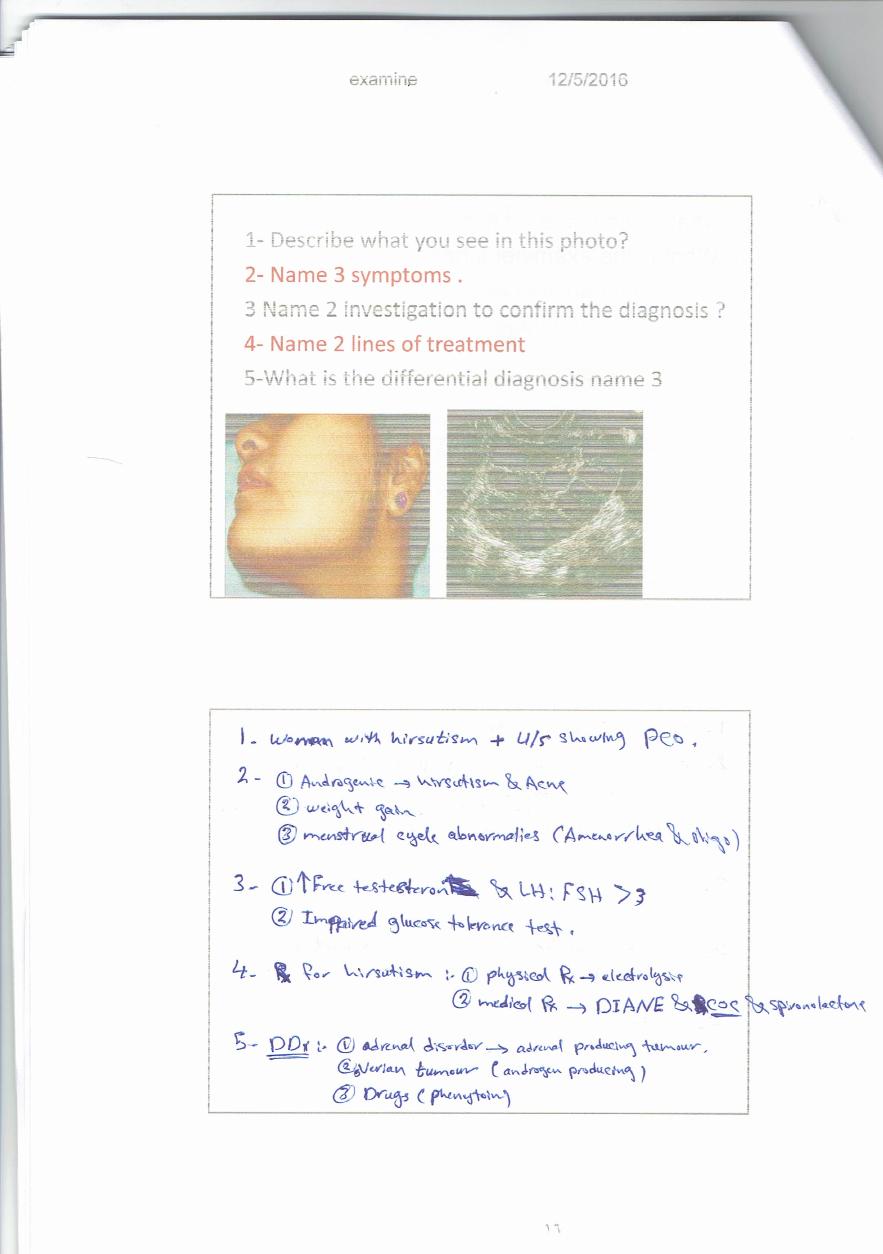 examine 12/5/2016
1- Describe what you see in this photo?
2- Name 3 symptoms .
3 Name 2 investigation to confirm the diagnosis ?
4- Name 2 lines of treatment
5-What is the differential diagnosis name 3
1- Woman with hirsutism + U/S showing PCO.
2- ① Androgenic → hirsutism & Acne
② weight gain
③ menstrual cycle abnormalies (Amenorrhea & oligo)
3- ① ↑ Free testesteron & LH: FSH >3
② Impaired glucose tolerance test.
4- Rx for hirsutism :- ① physical Rx → electrolysis
② medical Rx → DIANE & COC & spironolactone
5- DDx :- ① adrenal disorder → adrenal producing tumour.
② overian tumour (androgen producing)
③ Drugs (phenytoin)